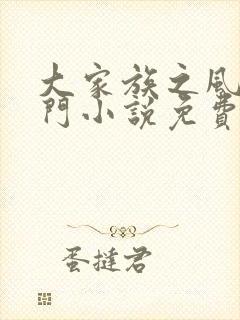 大家族之風
門小說免費
蛋撻君